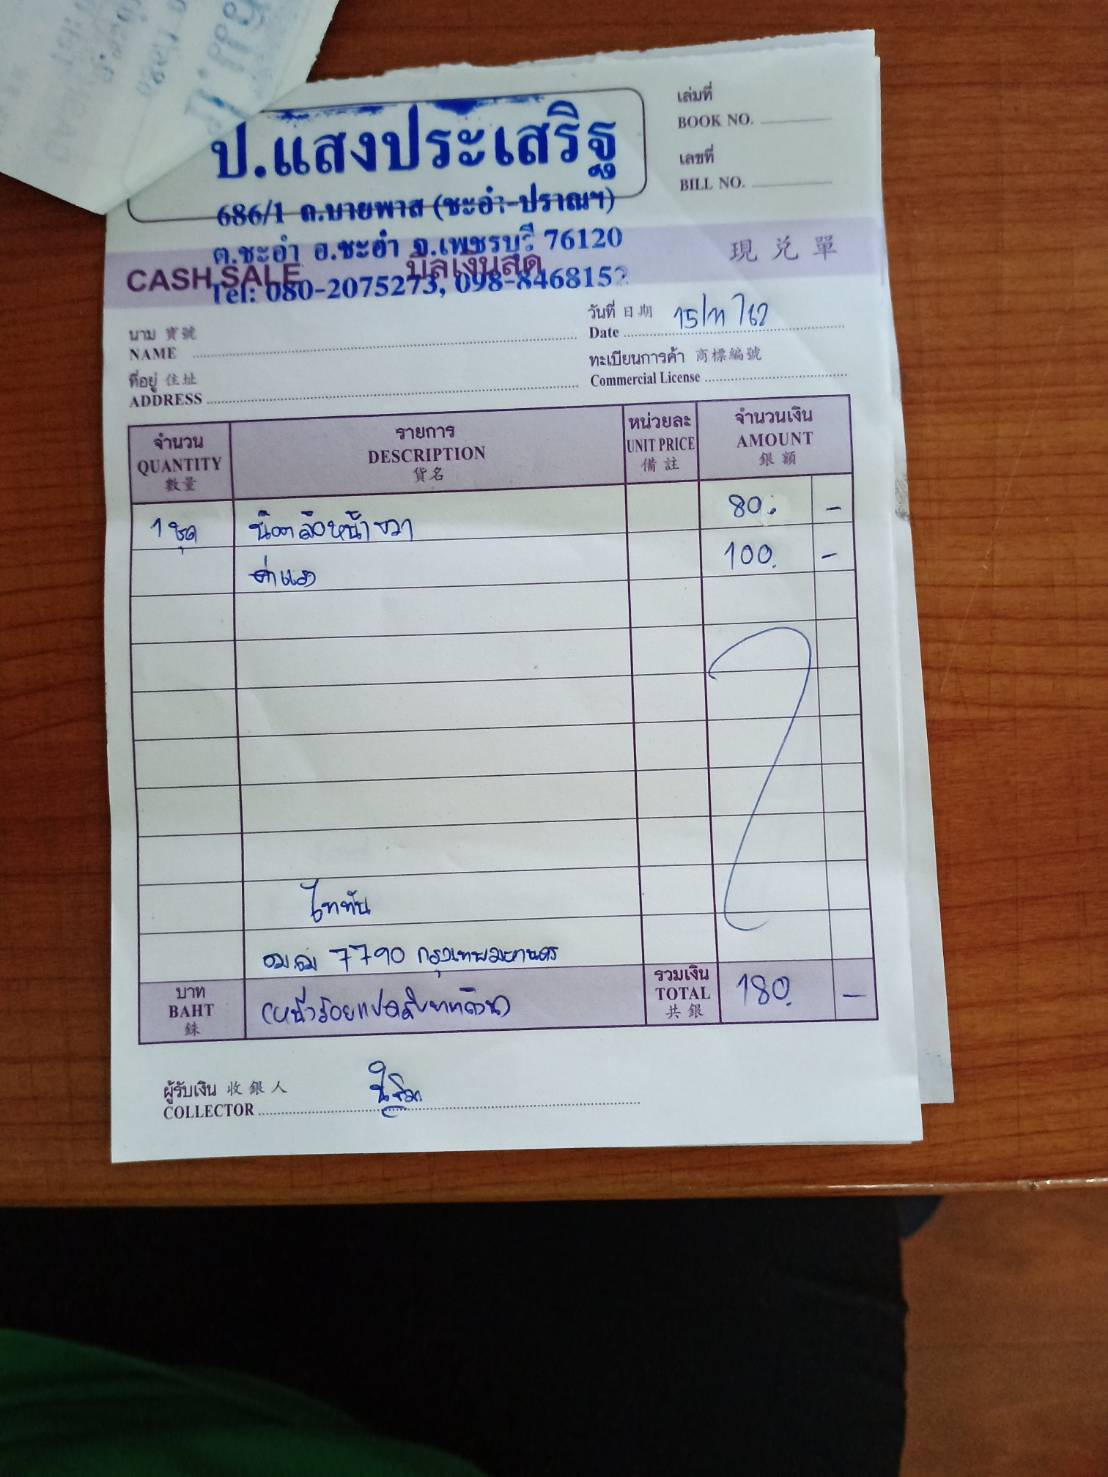 ป.แสงประเสริฐ
686/1 ถ.บายพาส (ชะอำ-ปราณฯ)
ต.ชะอำ อ.ชะอำ จ.เพชรบุรี 76120
Tel: 080-2075273, 098-8468152
เล่มที่
BOOK NO.
เลขที่
BILL NO.
CASH SALE บิลเงินสด 現兑單
วันที่ 日期
Date 15/11/62
นาม 寶號
NAME
ทะเบียนการค้า 商標編號
Commercial License
ที่อยู่ 住址
ADDRESS
จำนวน รายการ หน่วยละ จำนวนเงิน
QUANTITY DESCRIPTION UNIT PRICE AMOUNT
數量 貨名 備註 銀額
1 ชุด น๊อตล้อหน้าขวา 80.-
ค่าแรง 100.-
ไททัน
7790 กรุงเทพมหานคร
บาท รวมเงิน
BAHT (หนึ่งร้อยแปดสิบบาทถ้วน) TOTAL 180.-
銖 共銀
ผู้รับเงิน 收銀人
COLLECTOR